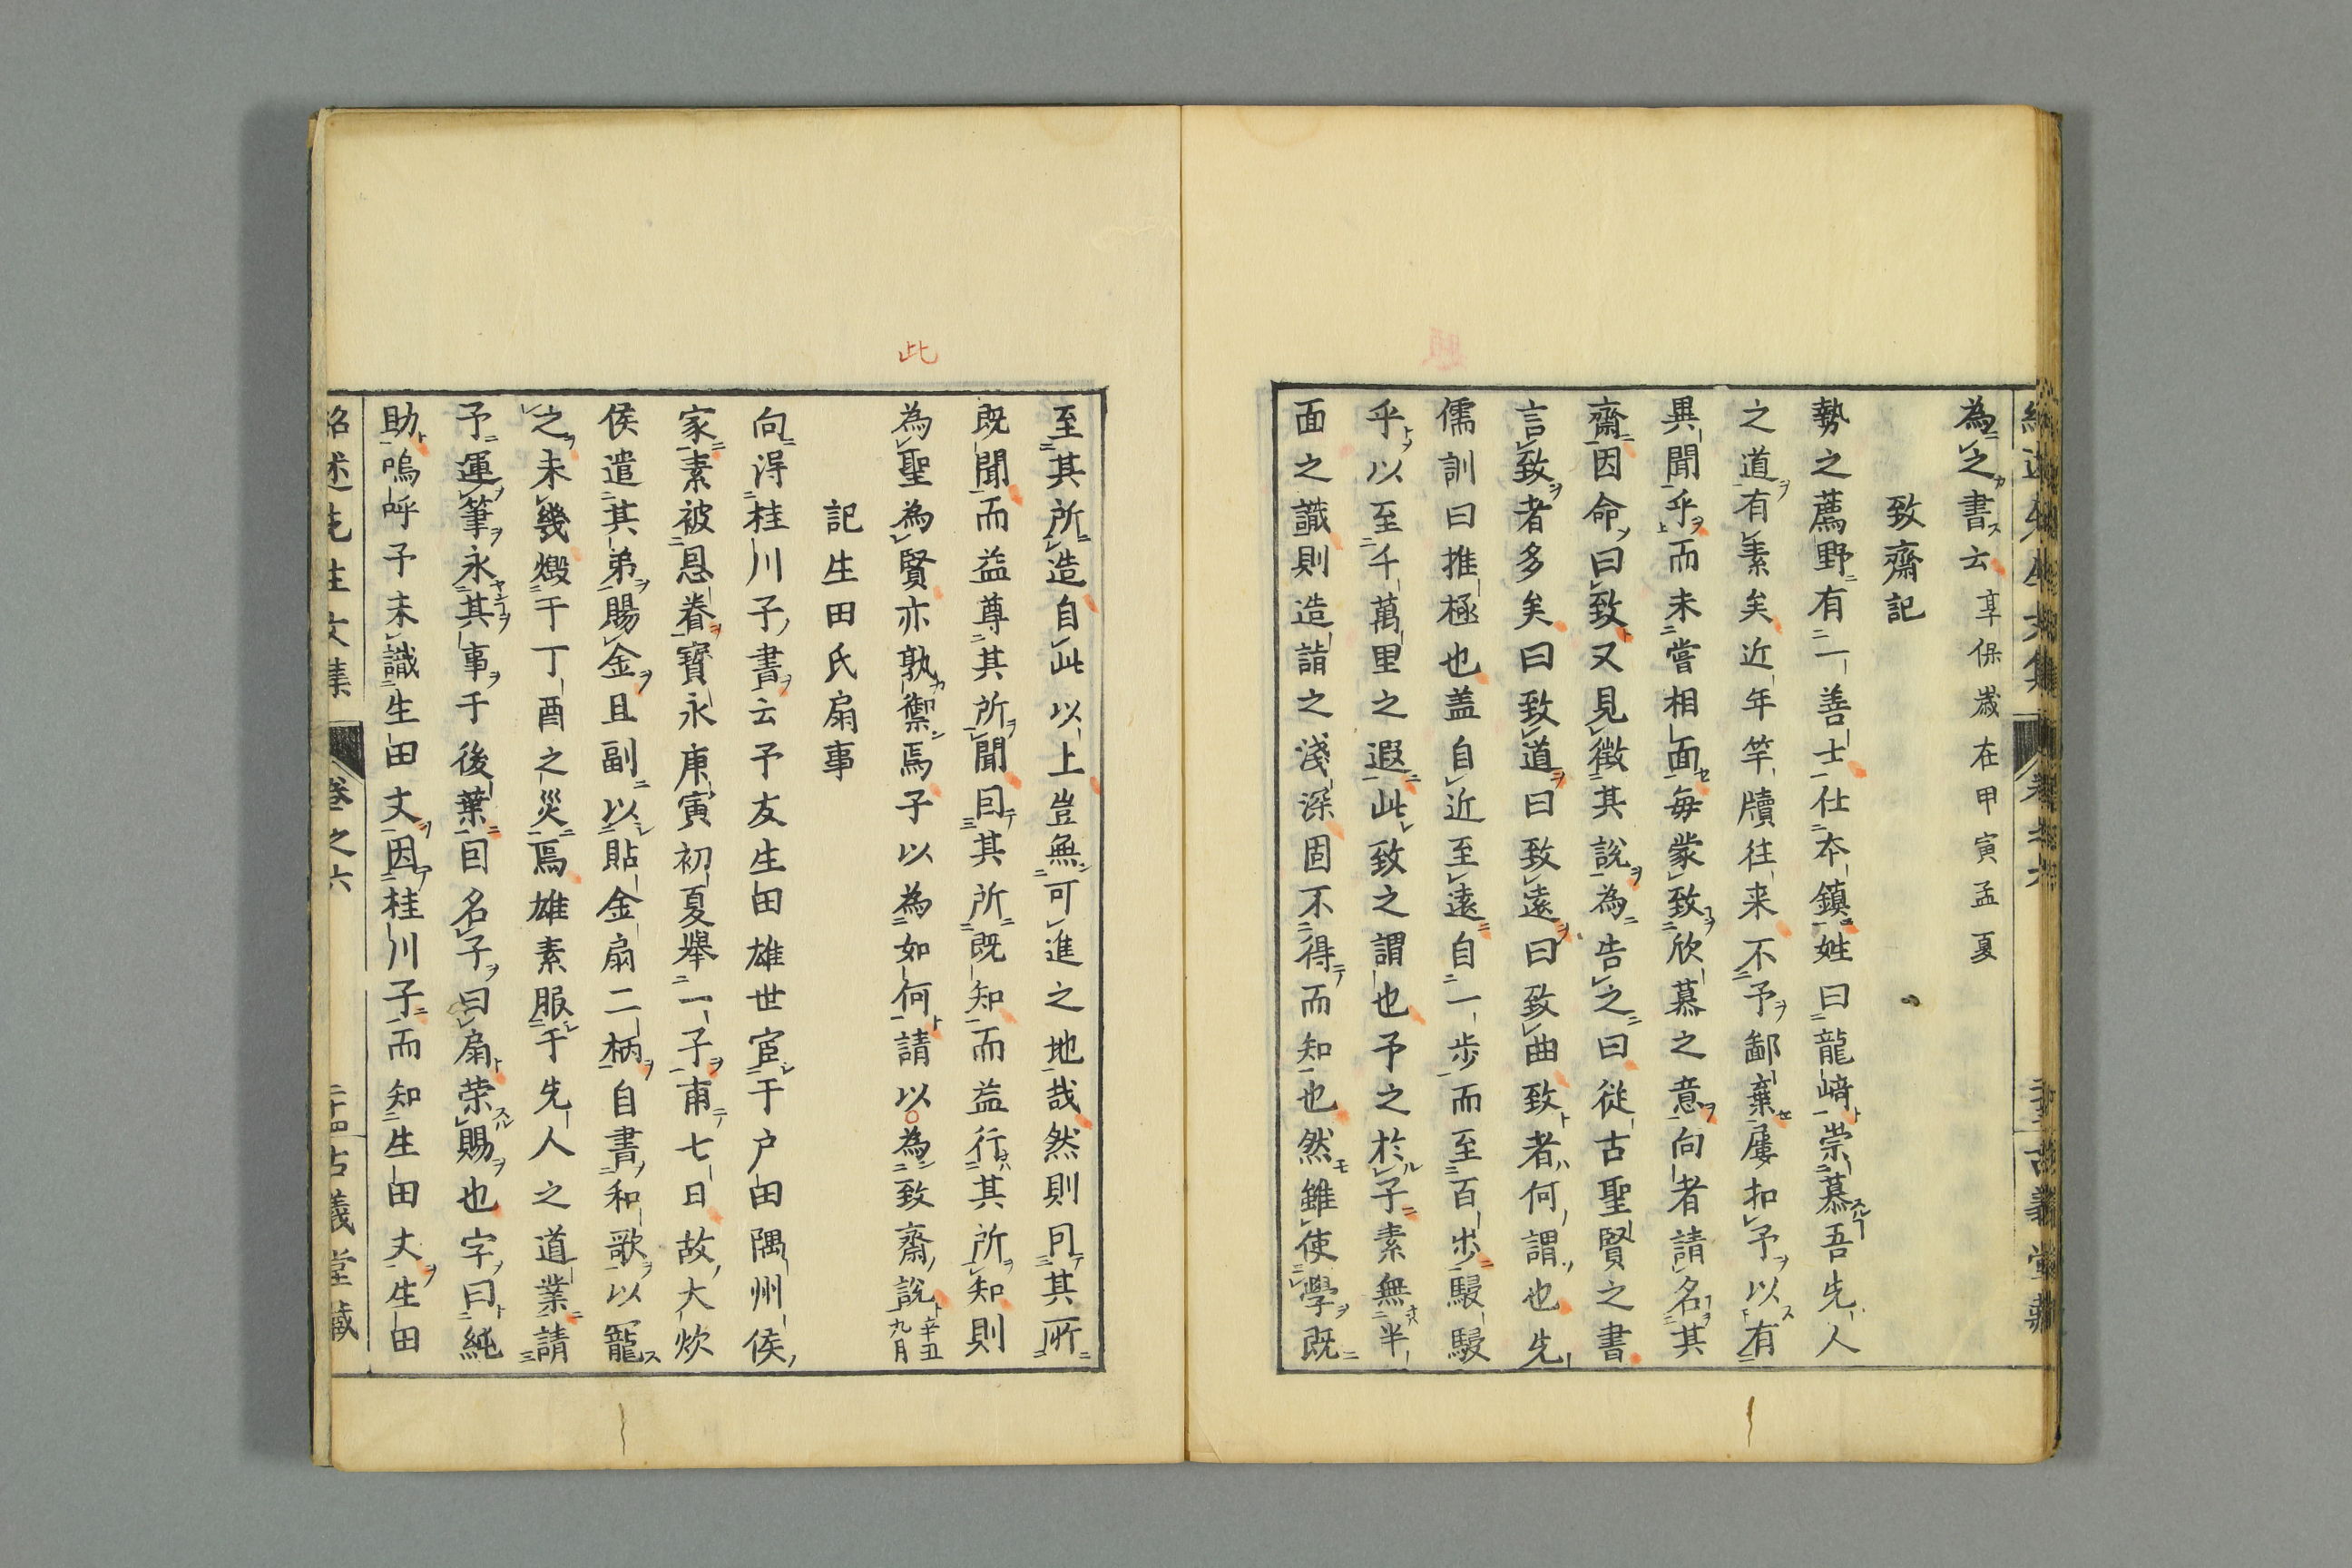 為之書云 享保歳在甲寅孟夏
致齋記
勢之薦野有一善士仕本鎮姓曰龍﨑崇慕吾先人
之道有素矣近年竿牘往来不予鄙棄屢扣予以有
異聞乎而未嘗相面毎蒙致欣慕之意向者請名其
齋因命曰致又見徴其説為告之曰従古聖賢之書
言致者多矣曰致道曰致遠曰致曲致者何謂也先
儒訓曰推極也盖自近至遠自一歩而至百歩駸駸
乎以至千萬里之遐此致之謂也予之於子素無半
面之識則造詣之淺深固不得而知也然雖使學既
至其所造自此以上豈無可進之地哉然則同其所
既聞而益尊其所聞因其所既知而益行其所知則
此
為聖為賢亦孰禦焉子以為如何請以為致齋説 辛丑九月
記生田氏扇事
向得桂川子書云予友生田雄世宦于戸田隅州侯
家素被恩眷寳永庚寅初夏舉一子甫七日故大炊
侯遣其弟賜金且副以貼金扇二柄自書和歌以寵
之未幾燬于丁酉之災焉雄素服于先人之道業請
予運筆永其事于後葉因名子曰扇荣賜也字曰純
助嗚呼予未識生田丈因桂川子而知生田丈生田
紹述先生文集 卷之六 二十四 古義堂藏